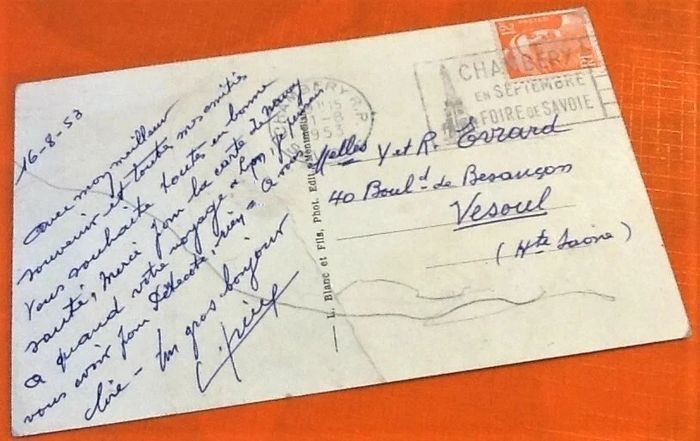 16-8-53
Avec mon meilleur
souvenir et toute mes amitiés
Vous souhaite toutes en bonne
santé, merci pour la carte de nancy
A quand votre voyage a Lyon,
vous avoir fam rien a vous
dire - Un gros bonjour
CHAMBERY R.P.
15
1953
CHAMBERY
EN SEPTEMBRE
FOIRE DE SAVOIE
POSTES
L. Blanc et Fils, Phot. Edit.
Melles Y et R. Evrard
40 Boul.d de Besançon
Vesoul
(Hte Saône)